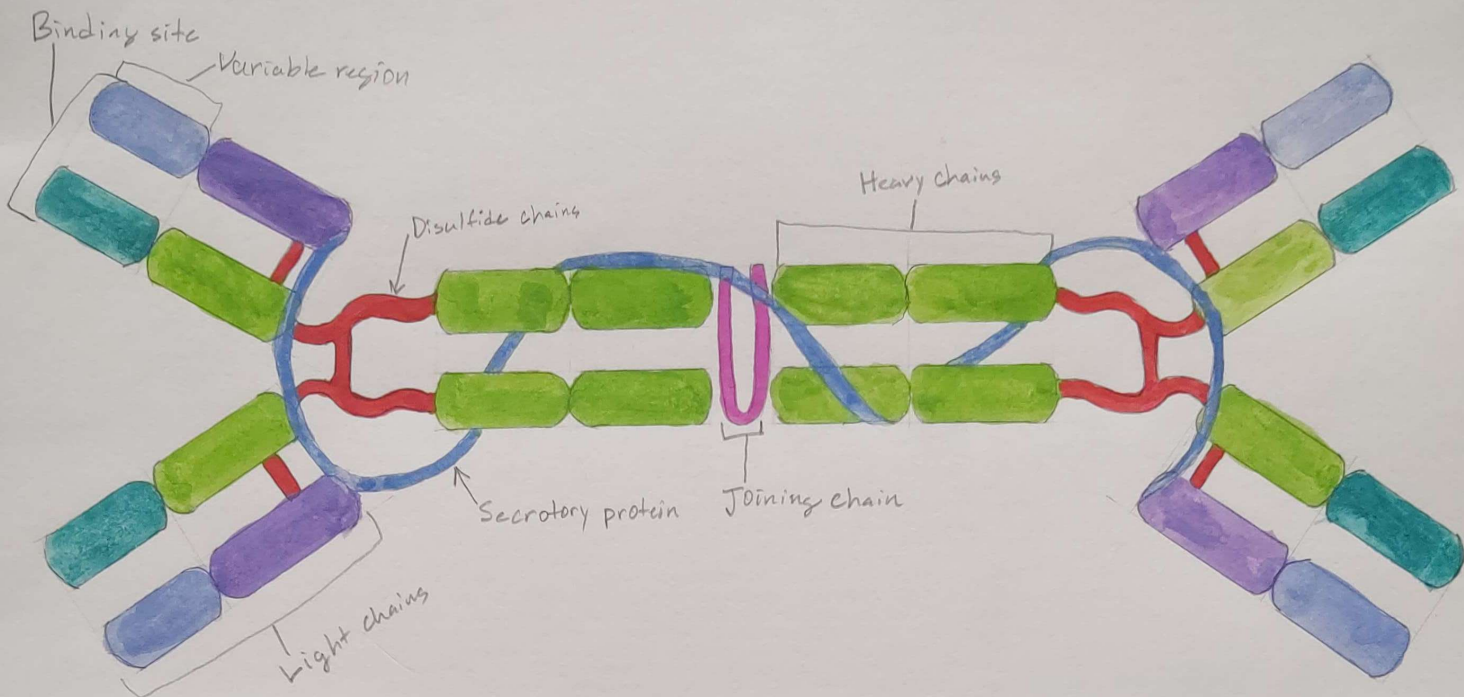 Binding site
Variable region
Heavy chains
Disulfide chains
Secrotory protein
Joining chain
Light chains